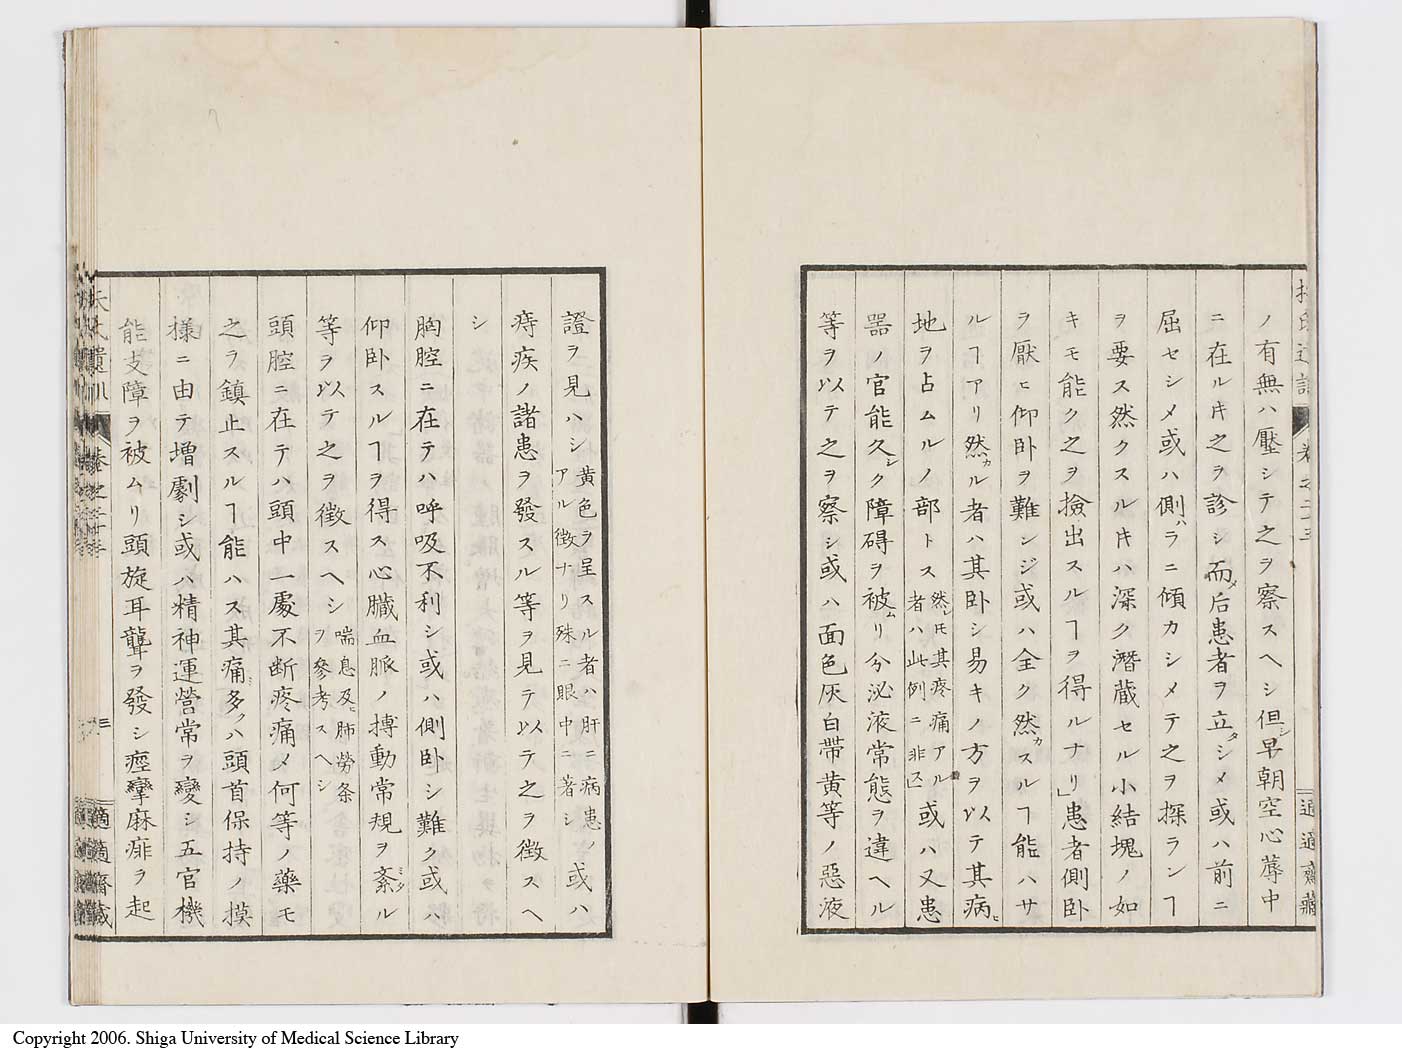 ノ有無ハ壓シテ之ヲ察スヘシ但シ早朝空心蓐中
ニ在ルキ之ヲ診シ而メ后患者ヲ立タシメ或ハ前ニ
屈セシメ或ハ側ハラニ傾カシメテ之ヲ探ランヿ
ヲ要ス然クスルキハ深ク潛蔵セル小結塊ノ如
キモ能ク之ヲ撿出スルヿヲ得ルナリ」患者側卧
ヲ厭ヒ仰卧ヲ難ンジ或ハ全ク然カスルヿ能ハサ
ルヿアリ然カル者ハ其卧シ易キノ方ヲ以テ其病ヒ
地ヲ占ムルノ部トス然レ𪜈其疼痛アル者ハ此例ニ非ス或ハ又患
噐ノ官能久シク障碍ヲ被ムリ分泌液常態ヲ違ヘル
等ヲ以テ之ヲ察シ或ハ面色灰白帶黄等ノ惡液
證ヲ見ハシ黄色ヲ呈スル者ハ肝ニ病患ノアル徴ナリ殊ニ眼中ニ著シ或ハ
痔疾ノ諸患ヲ發スル等ヲ見テ以テ之ヲ徴スヘ
シ
胸腔ニ在テハ呼吸不利シ或ハ側卧シ難ク或ハ
仰卧スルヿヲ得ス心臓血脈ノ搏動常規ヲ紊ミタル
等ヲ以テ之ヲ徴スヘシ喘息及ヒ肺勞条ヲ參考スヘシ
頭腔ニ在テハ頭中一處不断疼痛メ何等ノ藥モ
之ヲ鎮止スルヿ能ハス其痛ミ多クハ頭首保持ノ摸
樣ニ由テ増劇シ或ハ精神運營常ヲ變シ五官機
能支障ヲ被ムリ頭旋耳聾ヲ發シ痙攣麻痱ヲ起
卷之二十三
三
適適齋藏